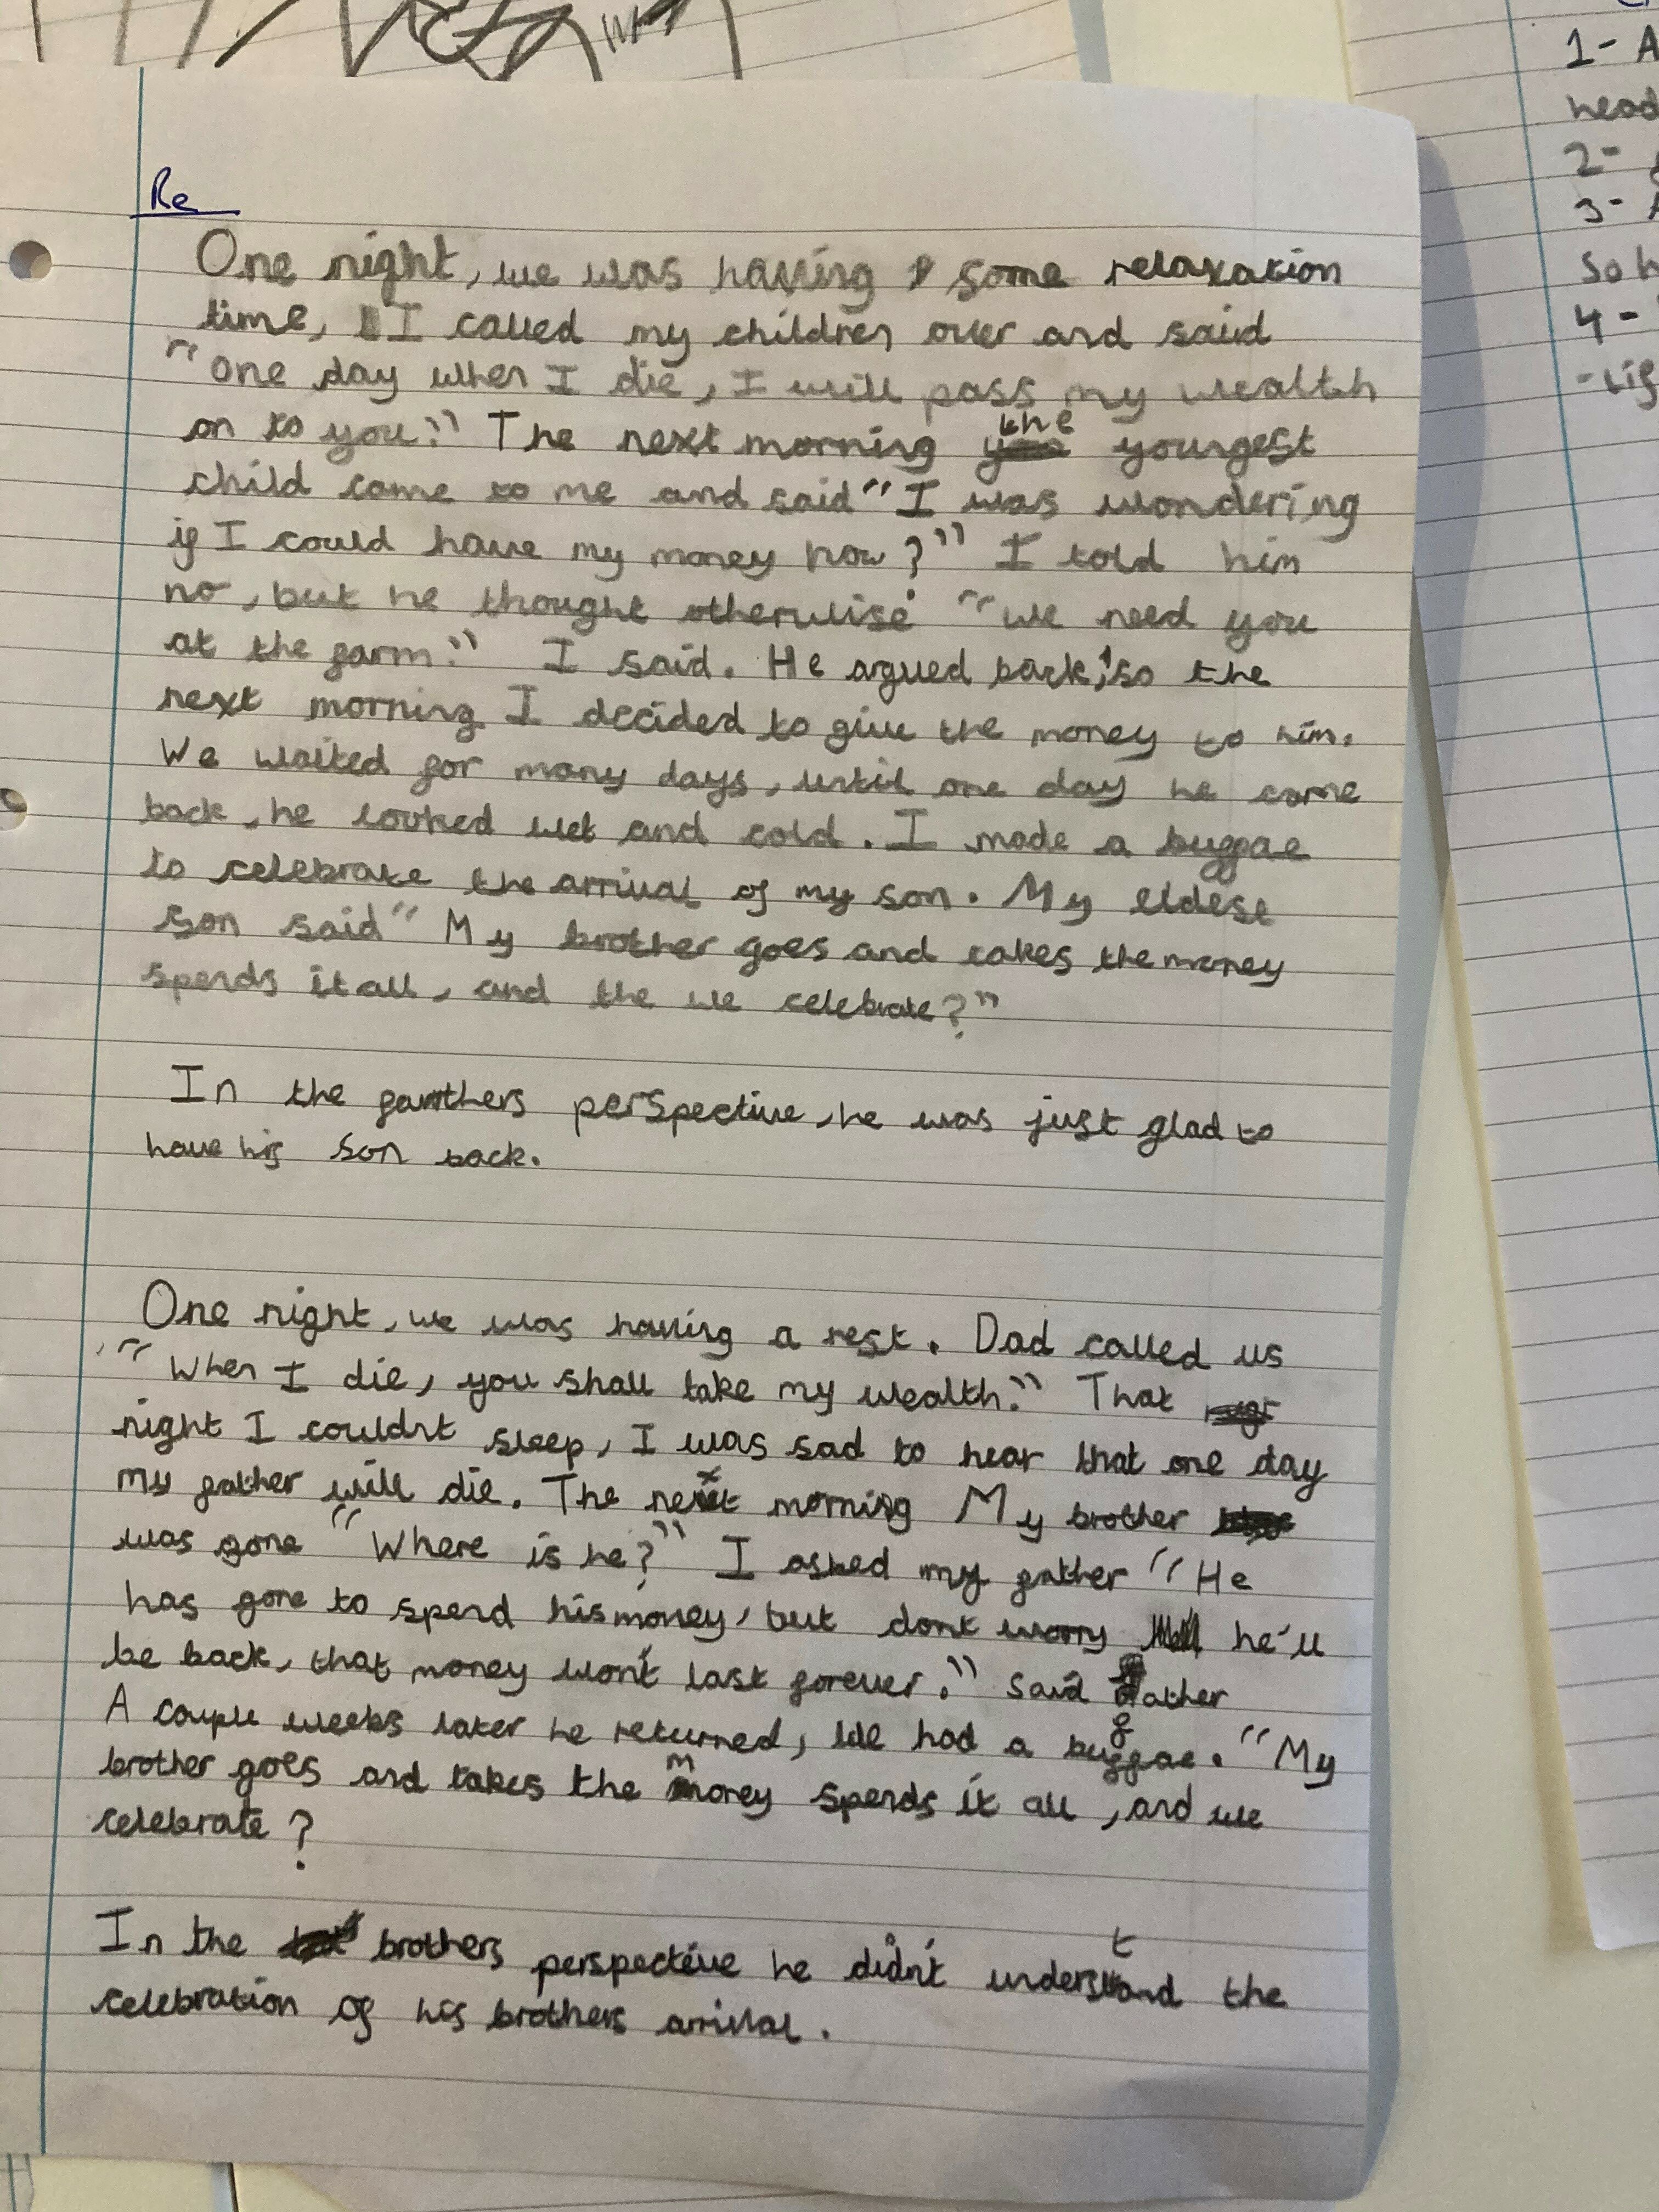 Re
One night, we was having some relaxation
time, I called my children over and said
"One day when I die, I will pass my wealth
on to you." The next morning the youngest
child came to me and said "I was wondering
if I could have my money now?" I told him
no, but he thought otherwise. "We need you
at the farm." I said. He argued back, so the
next morning I decided to give the money to him.
We waited for many days, until one day he came
back, he looked wet and cold. I made a buffae
to celebrate the arrival of my son. My eldest
son said "My brother goes and takes the money
spends it all, and the we celebrate?"
In the fathers perspective, he was just glad to
have his son back.
One night, we was having a rest. Dad called us
"When I die, you shall take my wealth." That
night I couldn't sleep, I was sad to hear that one day
my father will die. The next morning My brother
was gone "Where is he?" I asked my father "He
has gone to spend his money, but dont worry he'll
be back, that money won't last forever." said father
A couple weeks later he returned, we had a buffae. "My
brother goes and takes the money spends it all, and we
celebrate?
In the brothers perspective he didn't understand the
celebration of his brothers arrival.
1- A
head
2-
3-
So h
4-